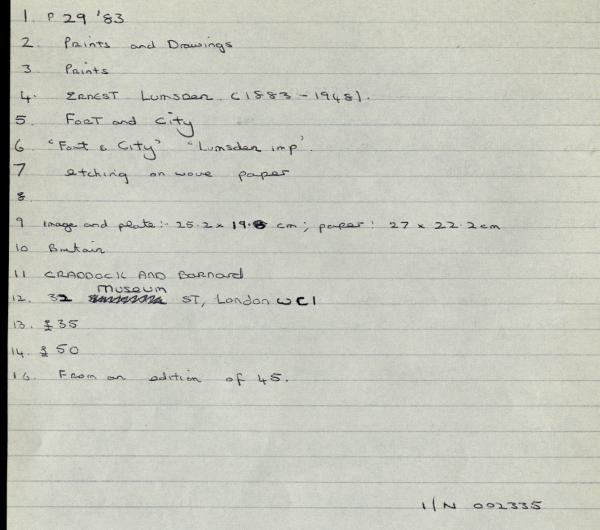 1. P 29 '83
2. Prints and Drawings
3 Prints
4. ERNEST Lumsden (1883 - 1948).
5. Fort and City
6 "Fort & City" "Lumsden imp".
7 etching on wove paper
8.
9 image and plate:- 25.2 x 19.8 cm; paper: 27 x 22.2cm
10 Britain
11 CRADDOCK AND Barnard
12. 32 Museum ST, London WC1
13. £35
14. £50
16. From an edition of 45.
I/N 002335